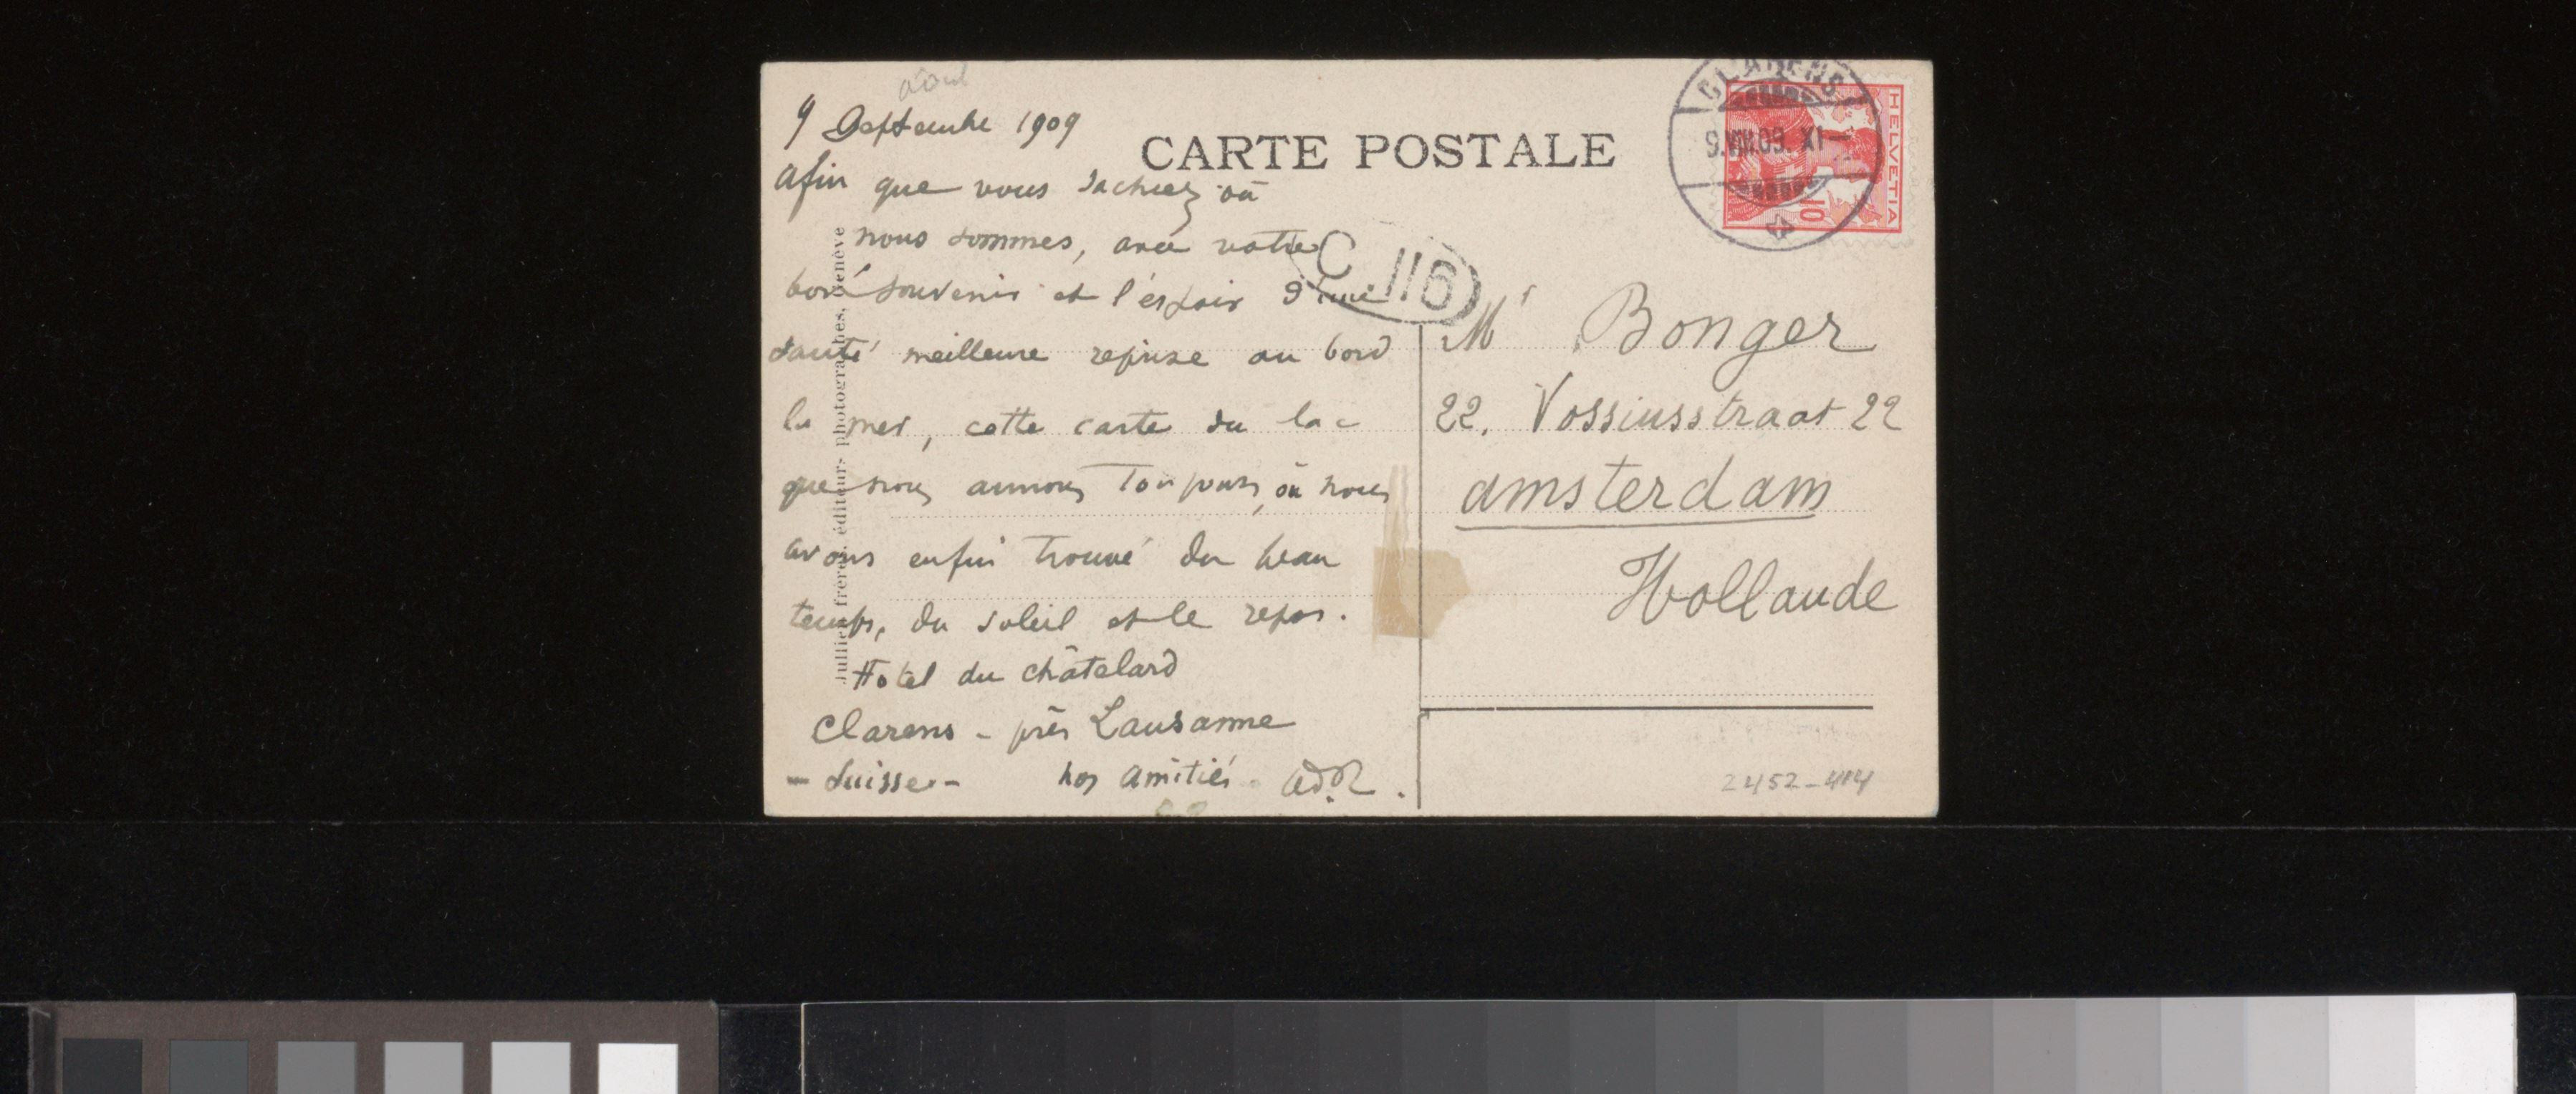 août
9 Septembre 1909
CARTE POSTALE
CLARENS
9.VIII.09. XI
HELVETIA
10
afin que vous sachiez où
nous sommes, avec notre
bon souvenir et l'espoir d'une
C 116
santé meilleure reprise au bord
la mer, cette carte du lac
que nous aimons toujours, où nous
avons enfin trouvé du beau
temps, du soleil et le repos.
Hotel du châtelard
Clarens - près Lausanne
- Suisse - nos amitiés. Od.R.
Jullien frères, éditeurs photographes, Genève
Mr Bonger
22. Vossiusstraat 22
amsterdam
Hollande
2452-414